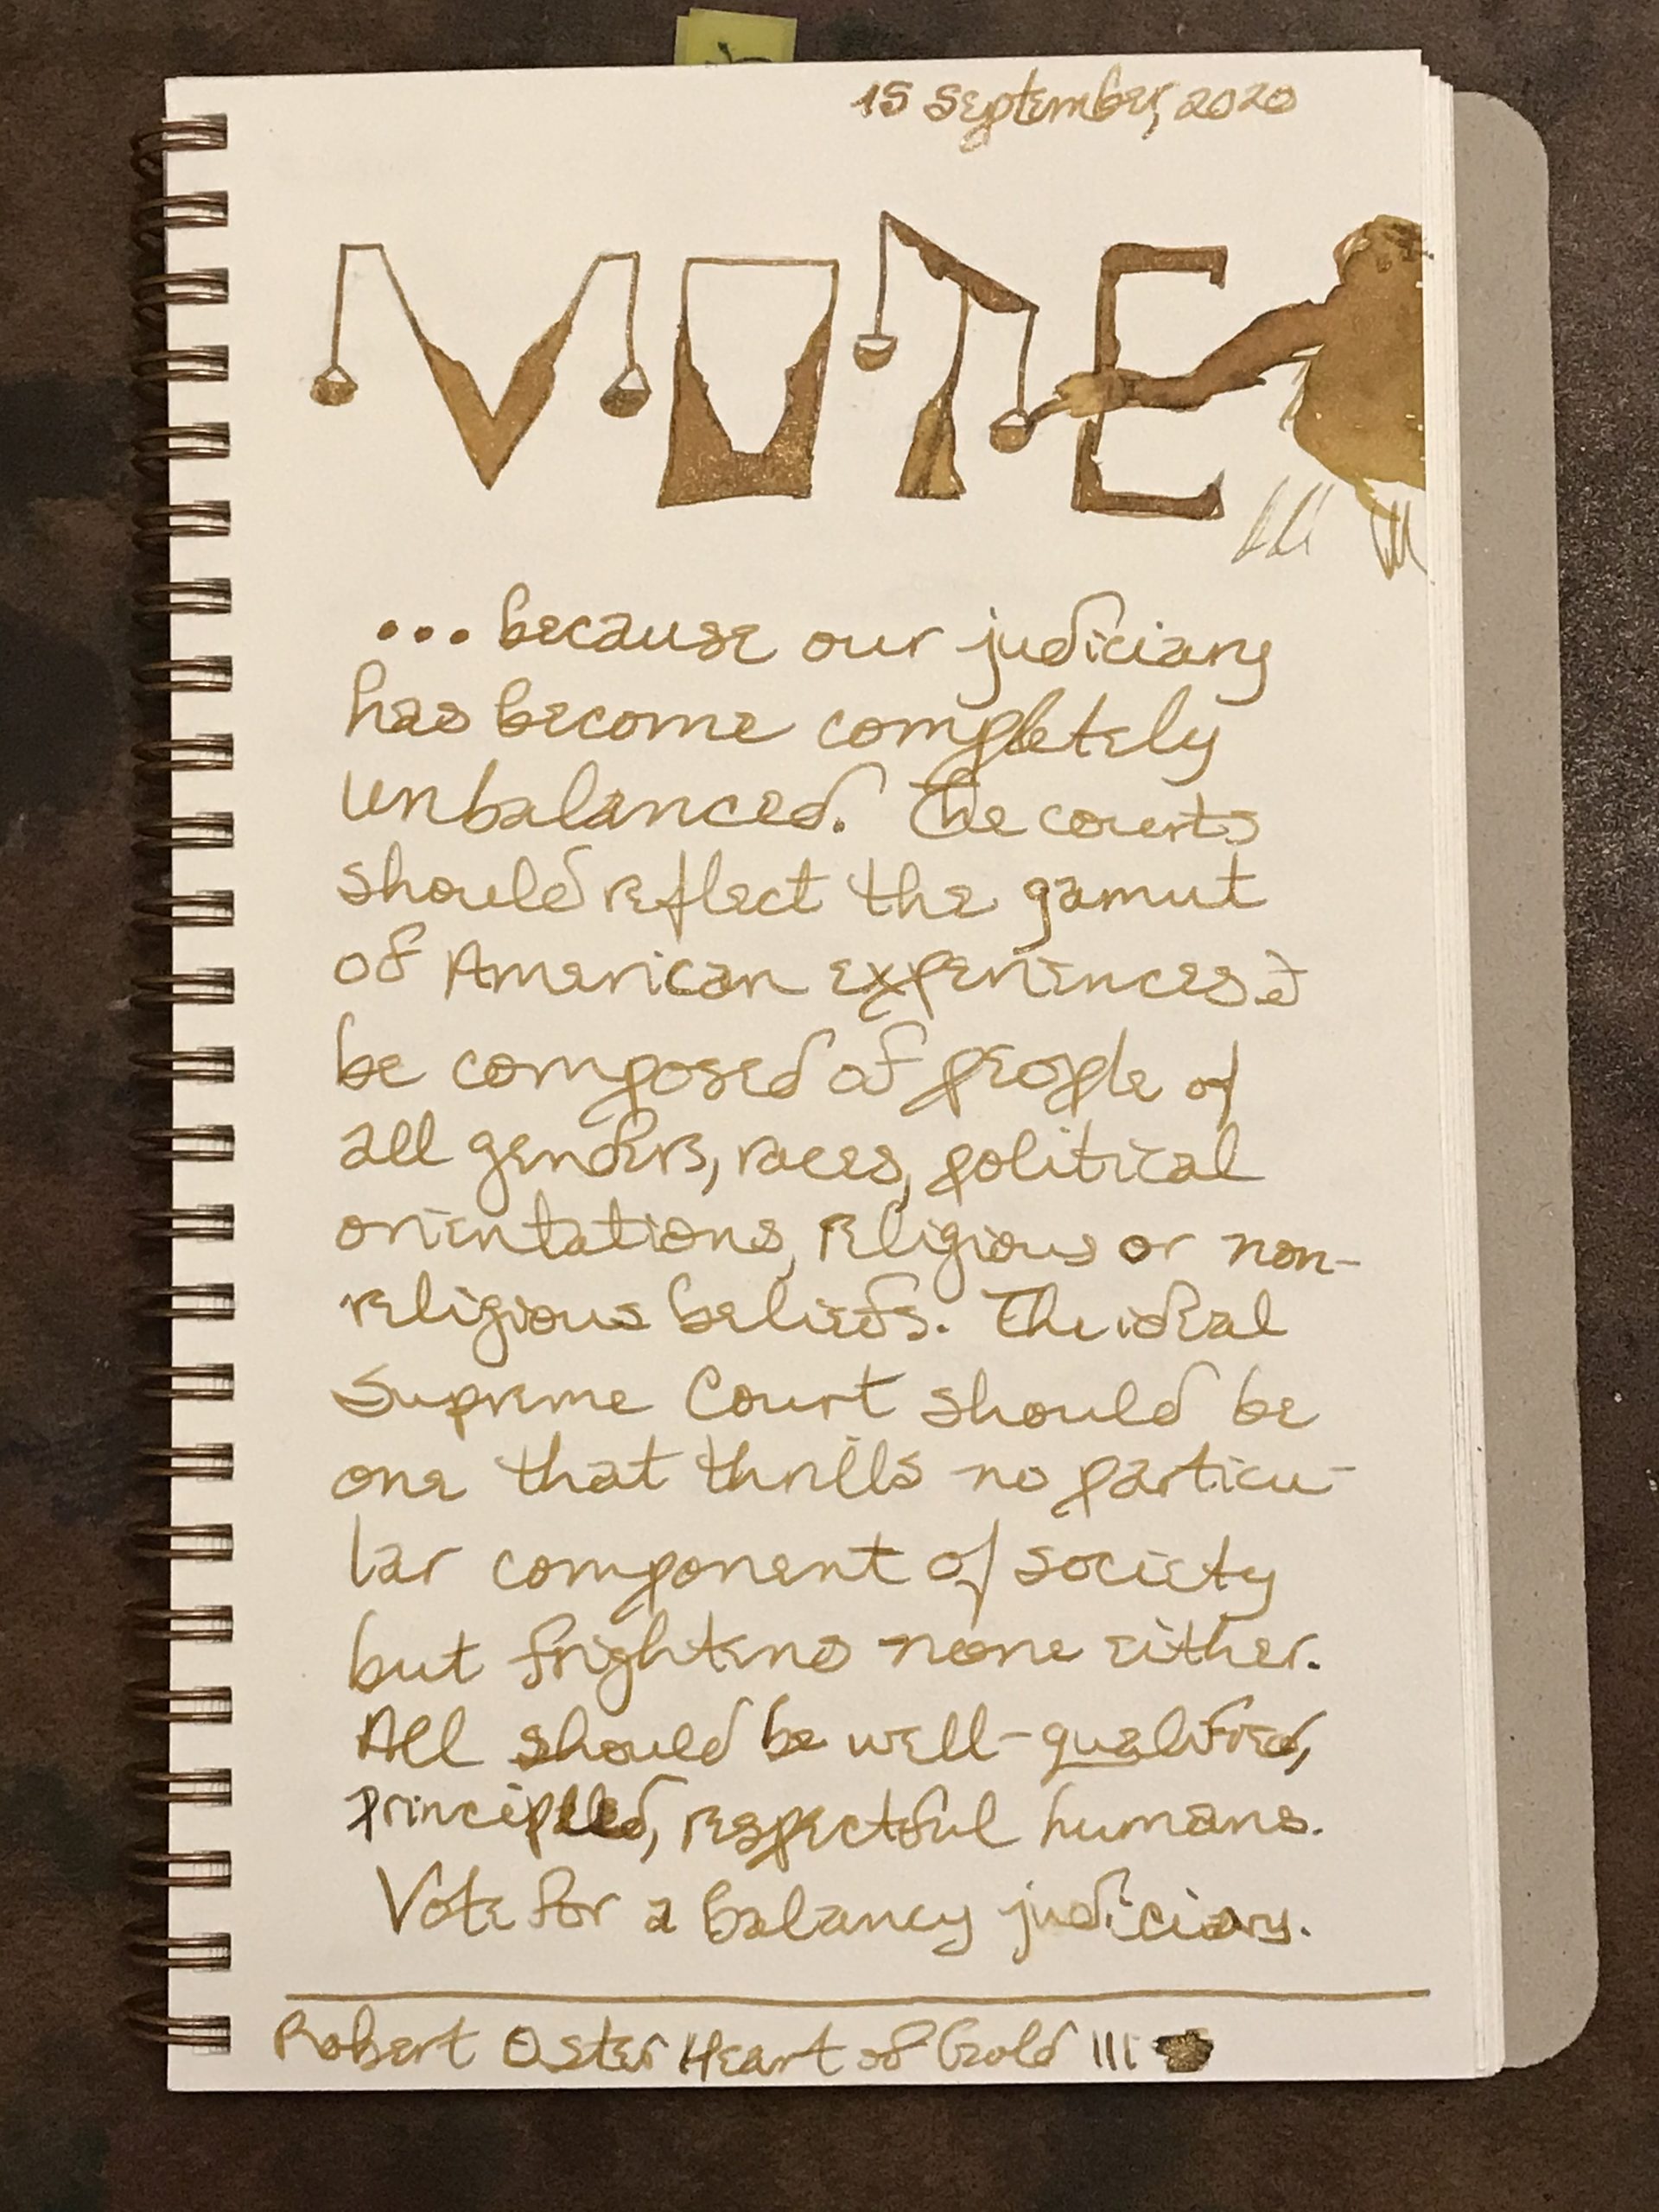 15 September, 2020
VOTE
... because our judiciary
has become completely
unbalanced. The courts
should reflect the gamut
of American experiences &
be composed of people of
all genders, races, political
orientations, religious or non-
religious beliefs. The ideal
Supreme Court should be
one that thrills no particu-
lar component of society
but frightens none either.
All should be well-qualified,
principled, respectful humans.
Vote for a balancy judiciary.
Robert Oster Heart of Gold III